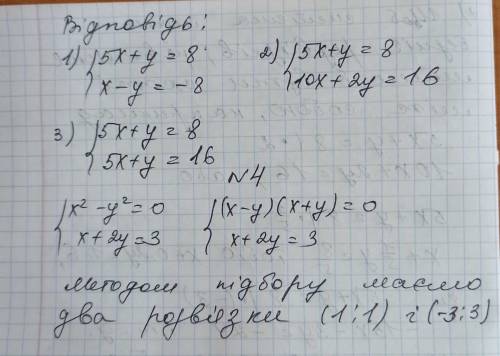 Відповідь:
1) { 5x+y=8 2) { 5x+y=8
x-y=-8 10x+2y=16
3) { 5x+y=8
5x+y=16
№4
{ x²-y²=0 { (x-y)(x+y)=0
x+2y=3 x+2y=3
Методом підбору маємо
два розв'язки (1;1) і (-3;3)